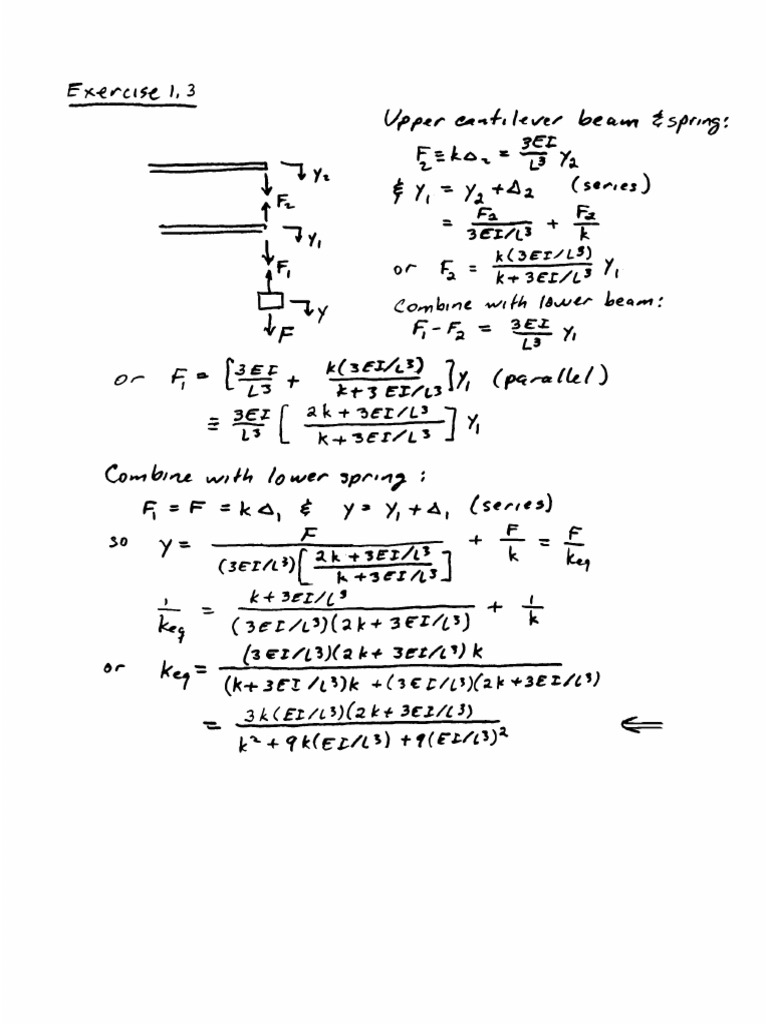 Exercise 1.3
Upper cantilever beam & spring:
F₂ ≡ kΔ₂ = 3EI/L³ y₂
& y₁ = y₂ + Δ₂ (series)
= F₂/(3EI/L³) + F₂/k
or F₂ = k(3EI/L³)/(k+3EI/L³) y₁
Combine with lower beam:
F₁ - F₂ = 3EI/L³ y₁
y₂
F₂
y₁
F₁
y
F
or F₁ = [3EI/L³ + k(3EI/L³)/(k+3EI/L³)] y₁ (parallel)
≡ 3EI/L³ [(2k+3EI/L³)/(k+3EI/L³)] y₁
Combine with lower spring:
F₁ = F = kΔ₁ & y = y₁ + Δ₁ (series)
so y = F/((3EI/L³)[(2k+3EI/L³)/(k+3EI/L³)]) + F/k = F/keq
1/keq = (k+3EI/L³)/((3EI/L³)(2k+3EI/L³)) + 1/k
or keq = (3EI/L³)(2k+3EI/L³)k/((k+3EI/L³)k+(3EI/L³)(2k+3EI/L³))
= 3k(EI/L³)(2k+3EI/L³)/(k²+9k(EI/L³)+9(EI/L³)²) ⇐